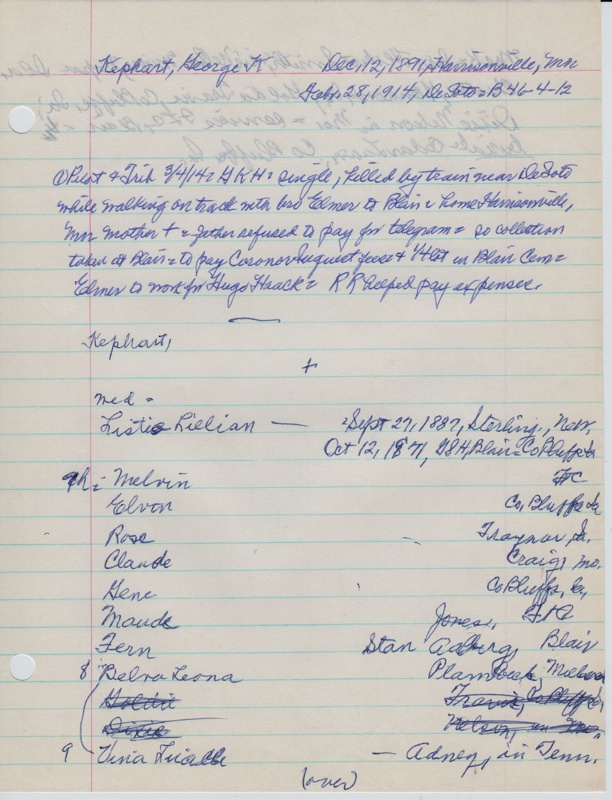 Kephart, George K Dec, 12, 1891, Harrisonville, Mo
Feb, 28, 1914, DeSoto = B 46-4-12
Pilot & Trib 3/4/14 = GKH = single, killed by train near DeSoto
while walking on track with bro Elmer to Blair = home Harrisonville,
Mo mother + = father refused to pay for telegram = so collection
taken at Blair = to pay Coronor August & 1/4 lot in Blair Cem =
Elmer to work for Hugo Haack = RR helped pay expenses.
Kephart,
+
med =
Lillian — = Sept 27, 1887, Sterling, Nebr.
Oct 12, 1971, 984, Blair = Co Bluffs Ia
9 Ch = Melvin FC
Elvon Co, Bluffs Ia
Rose Traynor, Ia.
Claude Craig, Mo.
Gene Co Bluffs, Ia,
Maude Jones, FC
Fern Stan Adberg, Blair
8 Belva Leona Plambeck,
Goldie Travis, Co Bluffs,
Dixie Nelson, in Mo.
9 — Adney, in Tenn.
(over)